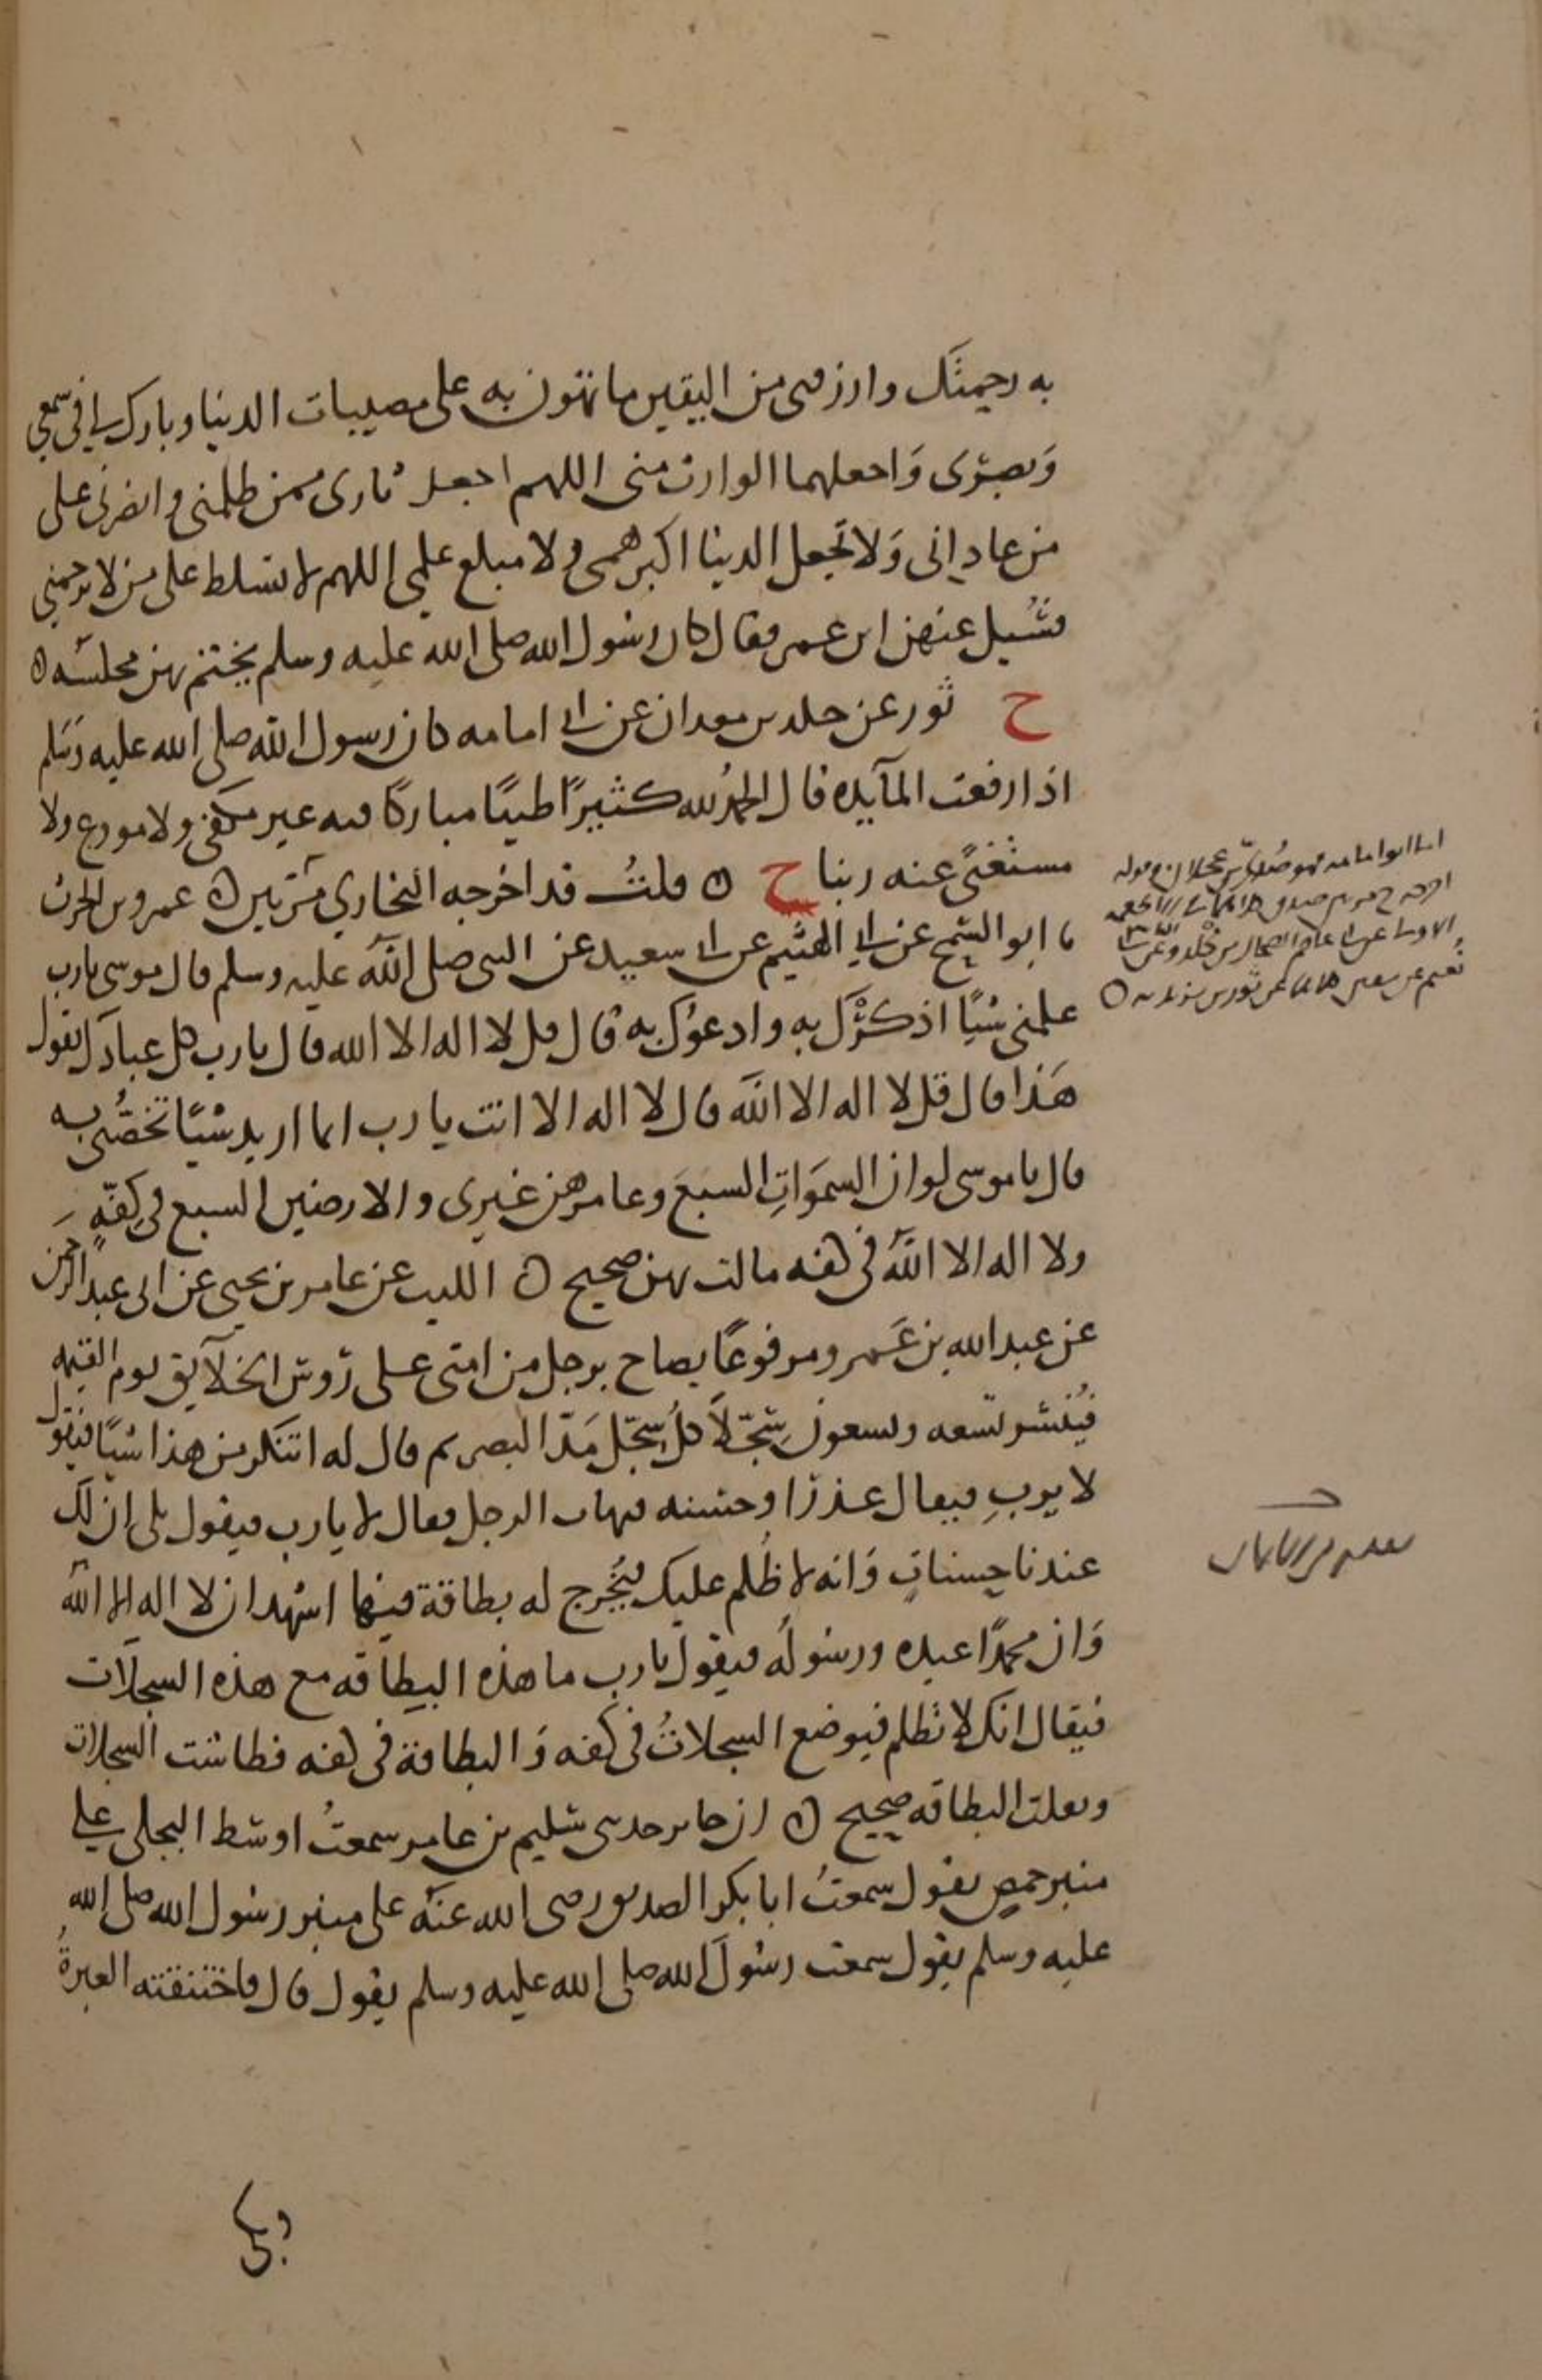 به رحمتك وارزقنى من اليقين ما تهون به على مصيبات الدنيا وبارك لى فى سمعي
وبصرى واجعلهما الوارث منى اللهم اجعل ثارى ممن ظلمنى وانصرنى على
من عادانى ولا تجعل الدنيا اكبر همى ولا مبلغ علمي اللهم لا تسلط على من لا يرحمني
فسُيل عنهن ابن عمر فقال كان رسول الله صلى الله عليه وسلم يختم بهن مجلسه ٥
ح ثور عن خلد بن معدان عن ابى امامه كان رسول الله صلى الله عليه وسلم
اذا رفعت المآيده قال الحمدُ لله كثيرًا طيبًا مباركًا فيه غير مكفى ولا مودع ولا
مستغنًى عنه ربنا ح ٥ قلتُ قد اخرجه البخاري مرتين ٥ عمرو بن الحرث
ما ابو السمح عن ابي الهيثم عن ابى سعيد عن النبى صلى الله عليه وسلم قال موسى يا رب
علمنى شيًا اذكرُك به وادعوك به قال قل لا اله الا الله قال يا رب كل عبادك يقول
هذا قال قل لا اله الا الله قال لا اله الا انت يا رب انما اريد شيًا تخصُّنى به
قال يا موسى لو ان السموَاتِ السبعَ وعامرهن غيرى والارضين السبع فى كِفّةٍ
ولا اله الا الله فى كفه مالت بهن صحيح ٥ الليث عن عامر بن يحيى عن ابى عبد الرحمن
عن عبد الله بن عَمرو مرفوعًا يصاح برجل من امتى على رؤس الخلآيق يوم القيمه
فيُنشر تسعه وتسعون سِجّلًا كلُ سِجّل مَدّ البصر ثم قال له اتنكر من هذا شيًا فيقول
لا يربِ فيقال عذرًا وحسنه فيهاب الرجل فقال لا يا رب فيقول بلى ان لك
عندنا حسناتٍ وَانه لا ظُلم عليك فيُخرج له بطاقة فيها اشهد ان لا اله الا الله
وَان محمدًا عبده ورسوله فيقول يا رب ما هذه البطاقه مع هذه السجلات
فيقال انك لا تظلم فيوضع السجلاتُ فى كفه وَالبطاقة فى كفه فطاشت السجلات
وثقلت البطاقه صحيح ٥ ابن جابر حدثنى سليم بن عامر سمعتُ اوسط البجلى على
منبر حمص يقول سمعتُ ابا بكر الصديق رضى الله عنه على منبر رسول الله صلى الله
عليه وسلم يقول سمعت رسولَ الله صلى الله عليه وسلم يقول قال فاختنقته العبرةُ